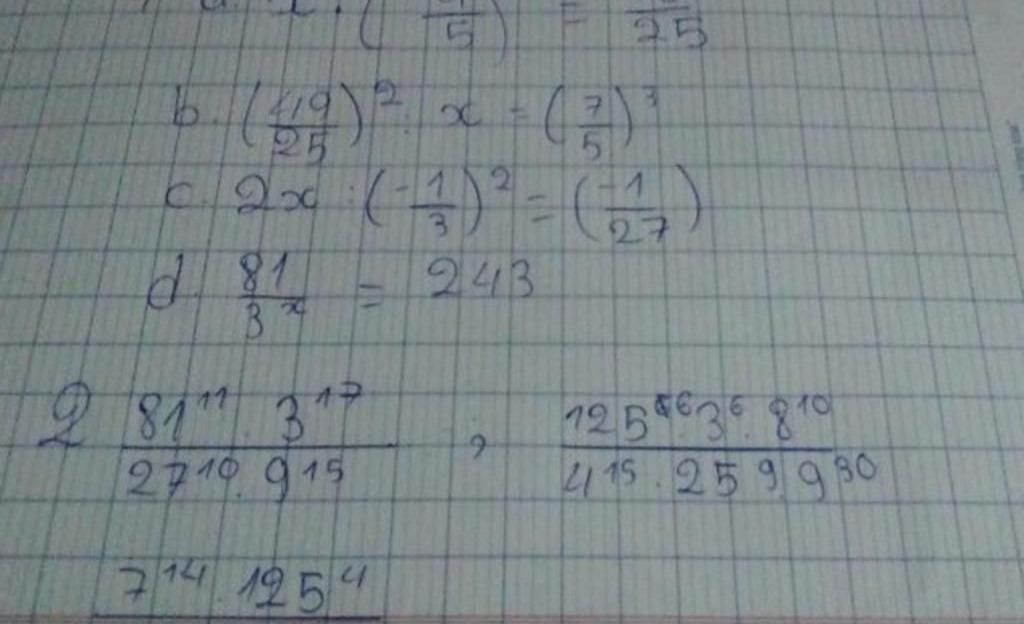 5) = 25
b. (49/25)² : x = (7/5)³
c. 2x : (-1/3)² = (-1/27)
d. 81/3ˣ = 243
2 81¹¹ . 3¹⁷ / 27¹⁰ . 9¹⁵ ; 125⁶ . 3⁶ . 8¹⁰ / 4¹⁵ . 25⁹ . 9³⁰
7¹⁴ . 125⁴